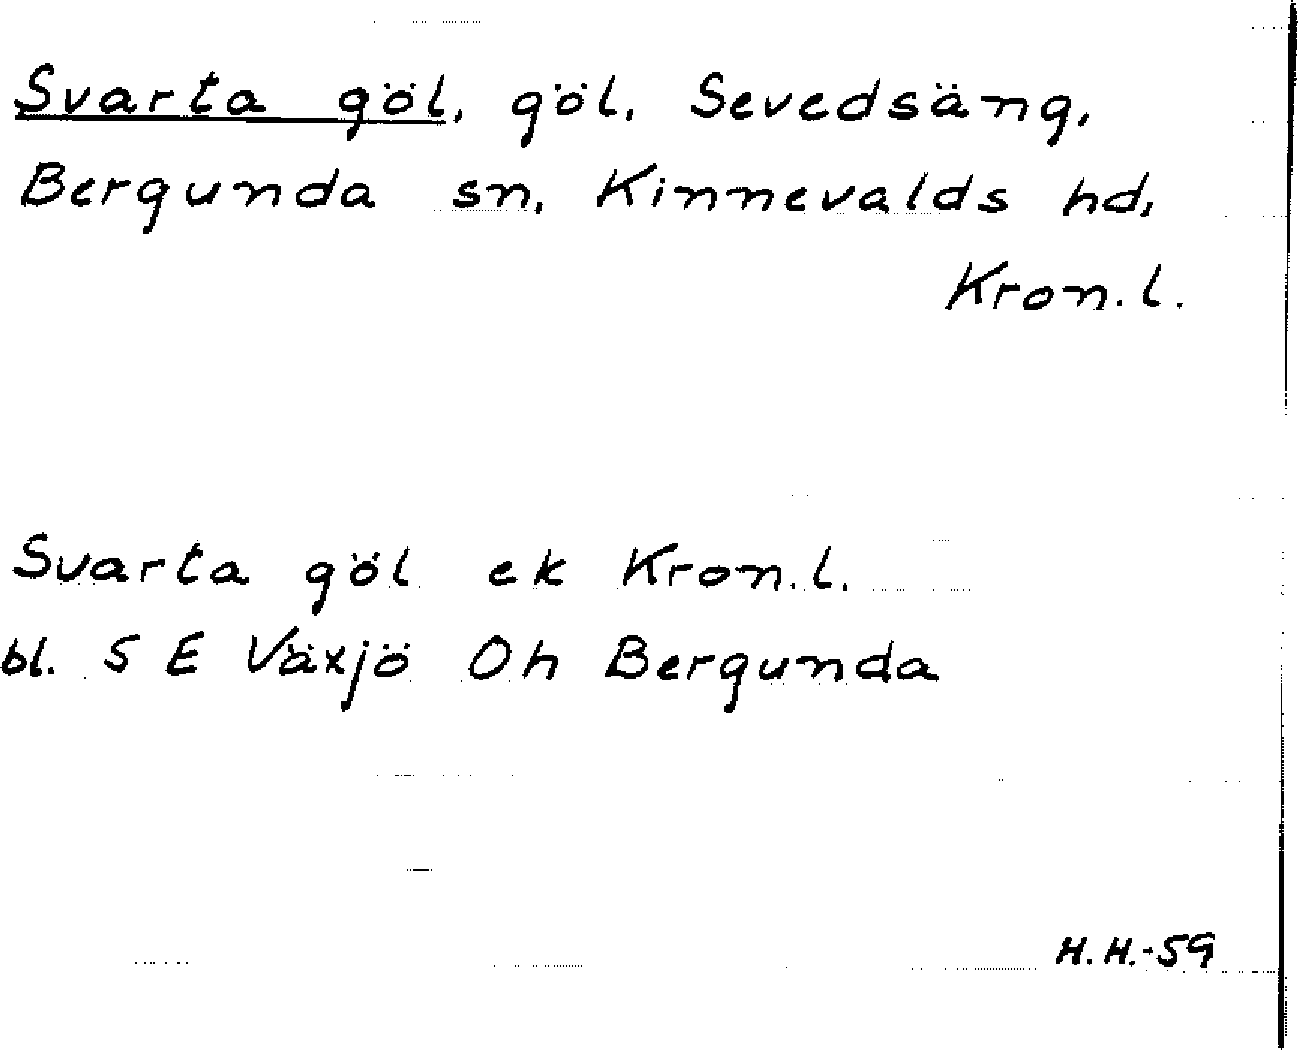 Svarta göl, göl, Sevedsäng,
Bergunda sn, Kinnevalds hd,
Kron.l.
Svarta göl ek Kron.l.
bl. S E Växjö Oh Bergunda
H.H.-59